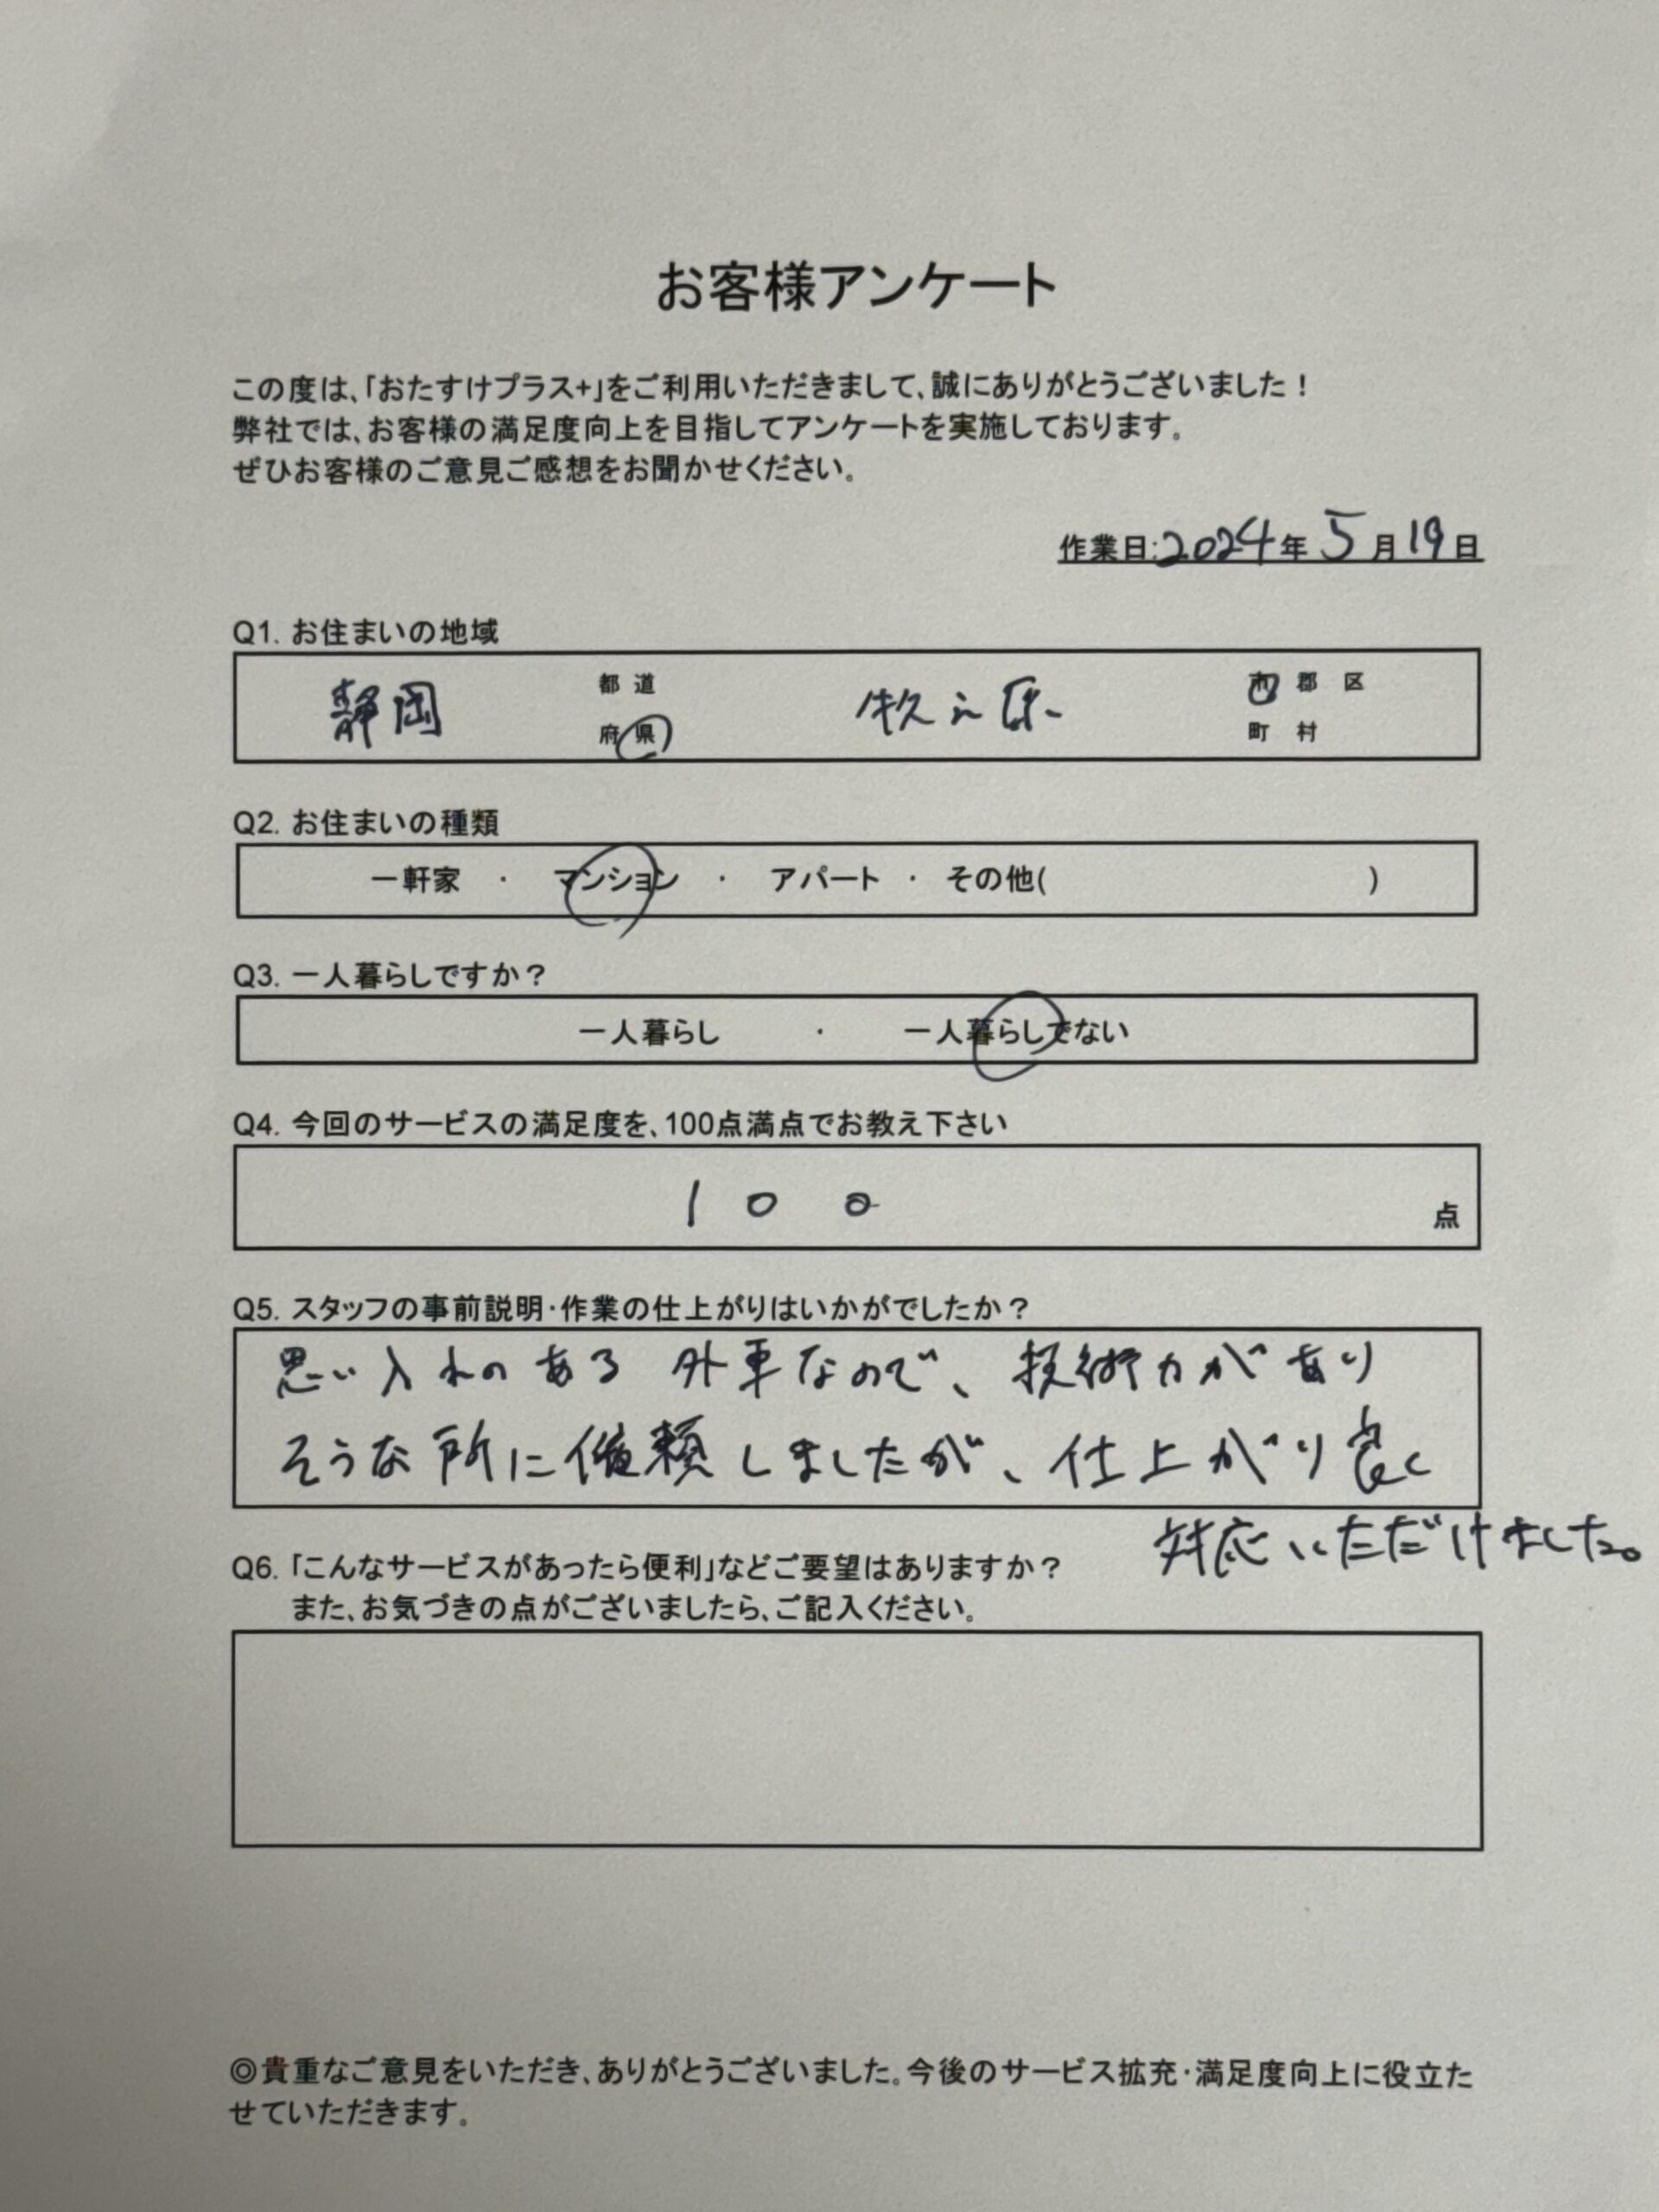 お客様アンケート
この度は、「おたすけプラス+」をご利用いただきまして、誠にありがとうございました！
弊社では、お客様の満足度向上を目指してアンケートを実施しております。
ぜひお客様のご意見ご感想をお聞かせください。
作業日:2024年5月19日
Q1. お住まいの地域
静岡 都 道 府 県 牧之原 市 郡 区 町 村
Q2. お住まいの種類
一軒家 ・ マンション ・ アパート ・ その他( )
Q3. 一人暮らしですか？
一人暮らし ・ 一人暮らしでない
Q4. 今回のサービスの満足度を、100点満点でお教え下さい
100 点
Q5. スタッフの事前説明・作業の仕上がりはいかがでしたか？
思い入れのある外車なので、技術力があり
そうな所に依頼しましたが、仕上がり良く
対応いただけました。
Q6. 「こんなサービスがあったら便利」などご要望はありますか？
また、お気づきの点がございましたら、ご記入ください。
◎貴重なご意見をいただき、ありがとうございました。今後のサービス拡充・満足度向上に役立た
せていただきます。